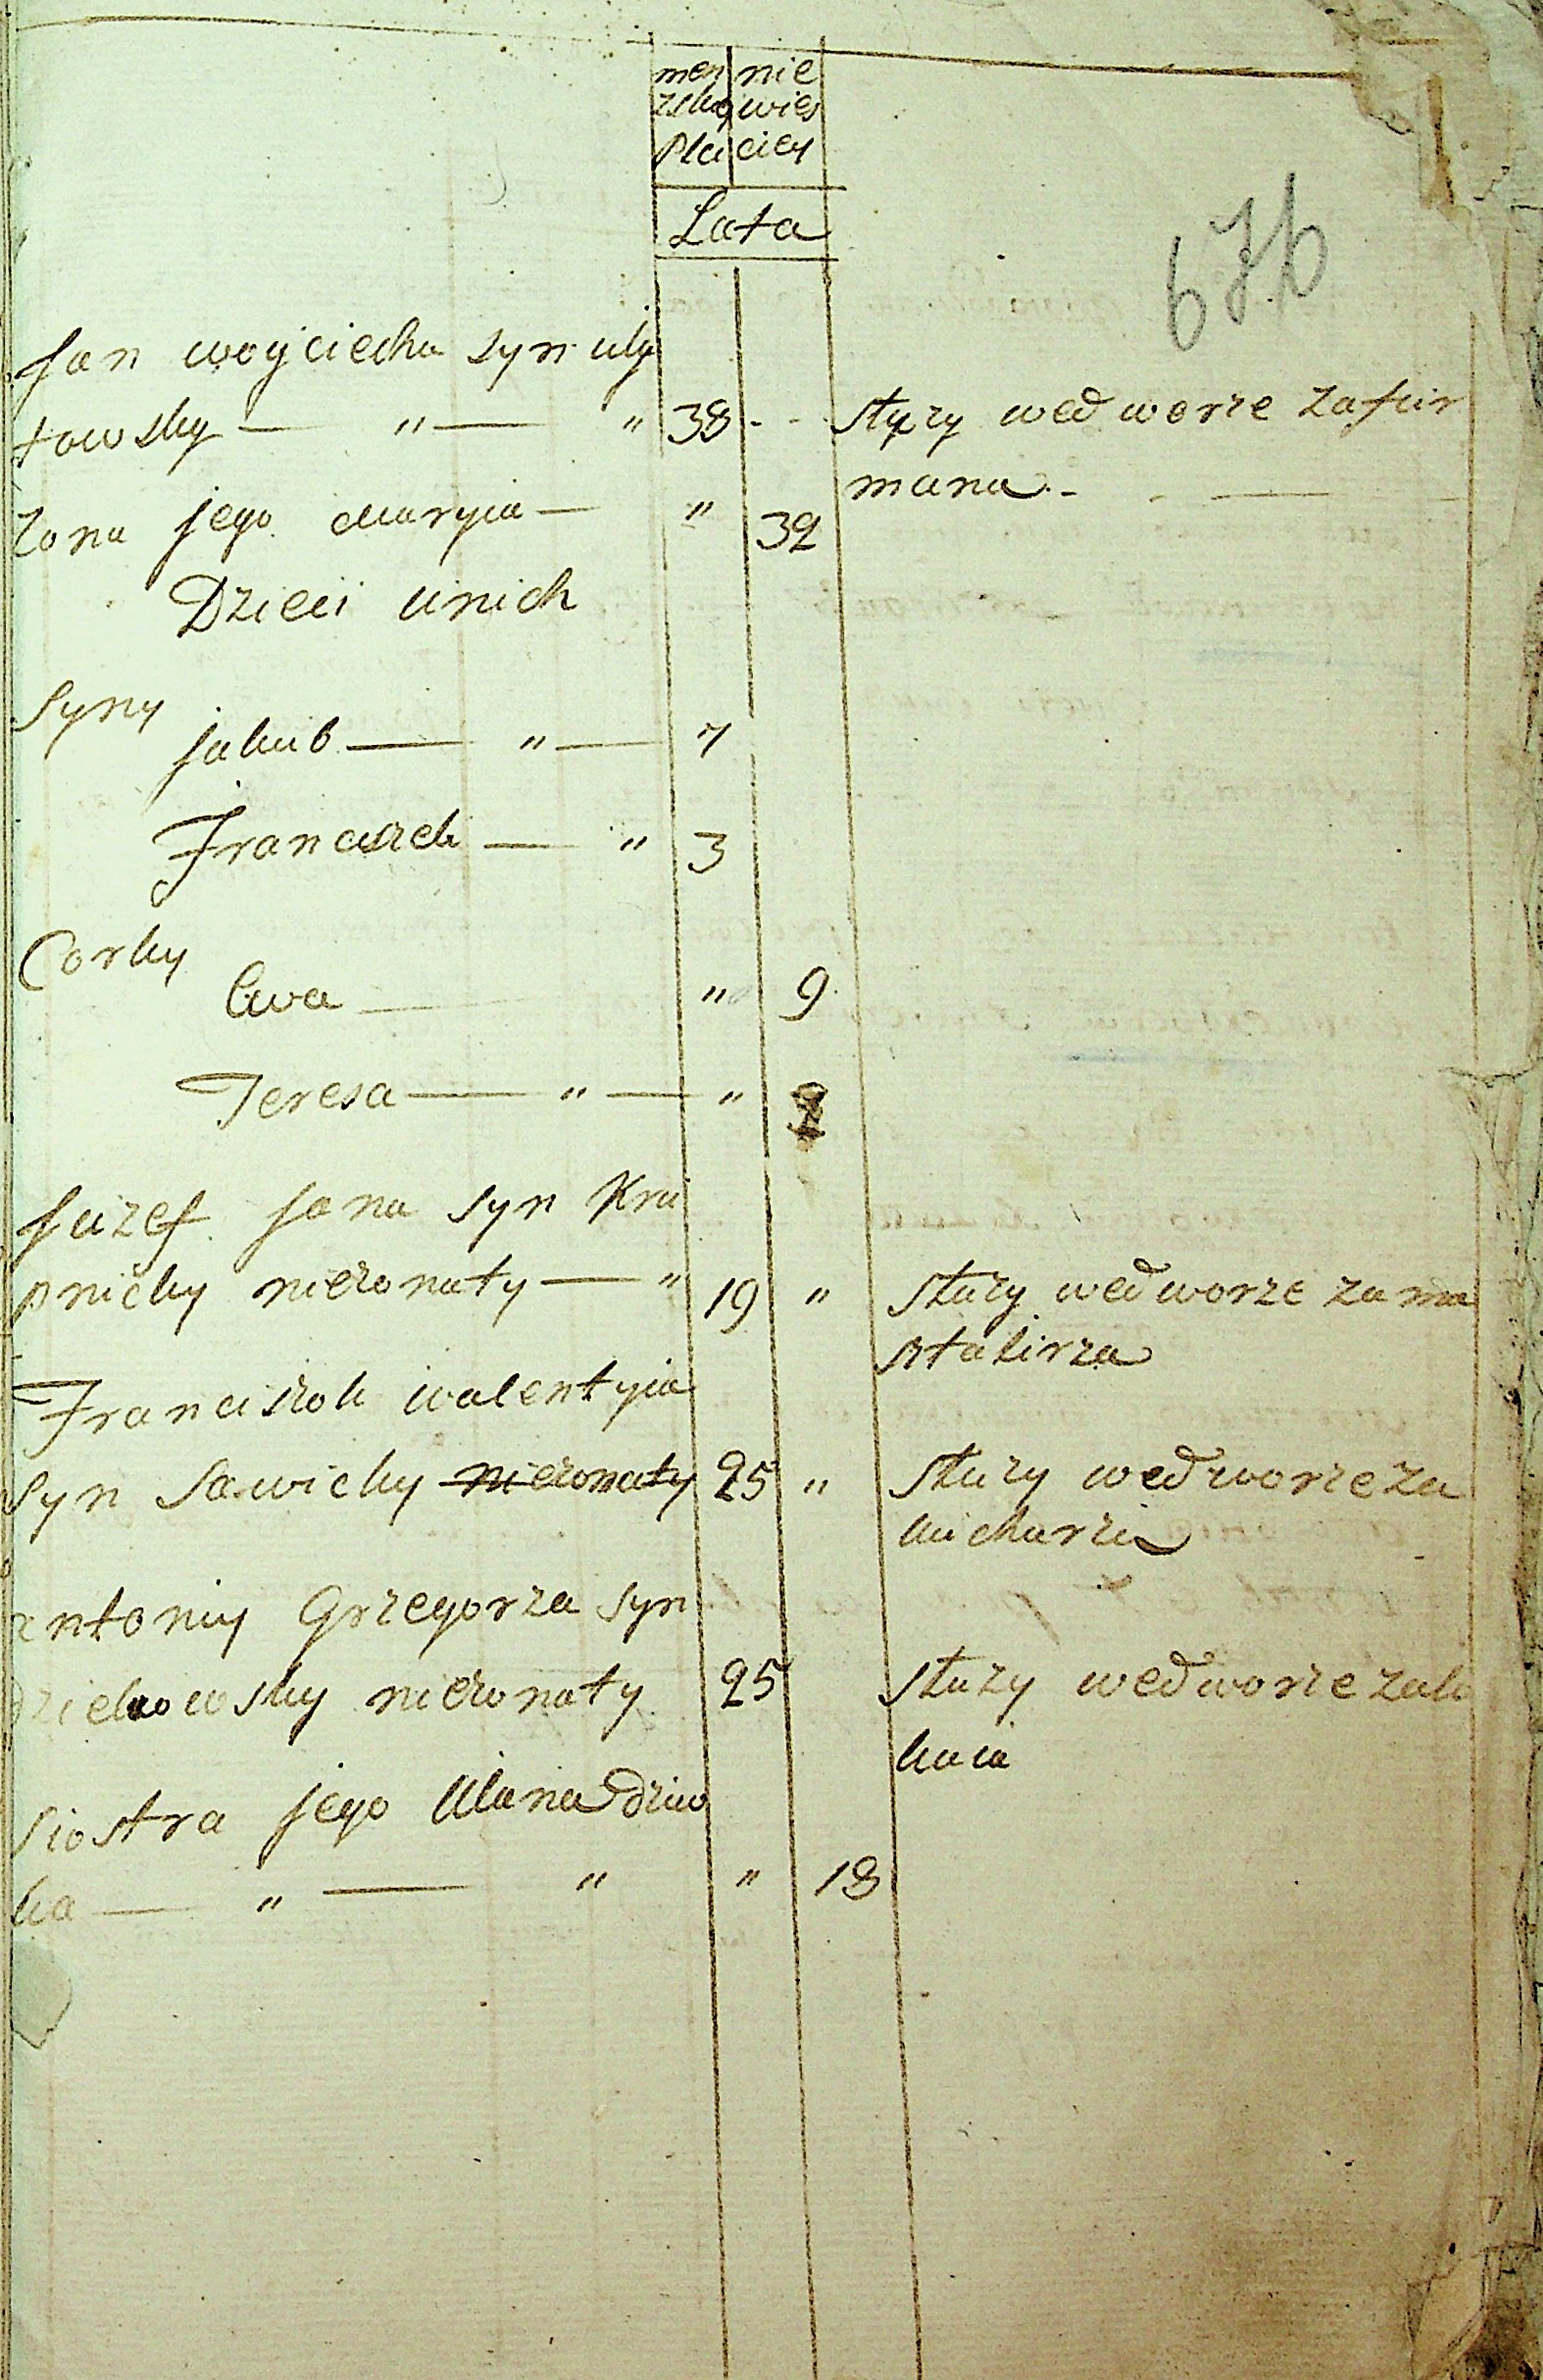 men nie
zska wies
Plci ciey
Lata
676
Jan wojciecha syn wy
towsky — " — " 38 - - Służy wed worze zafur
mana - - —
zona jego Maryia — " 32
Dzieci unich
Syny
Jakub — " — 7
Franciszek — " 3
Corky
Ewa — " 9
Teresa — " — "
Juzef Jana syn Kru
pnicky niezonaty — " 19 " Służy wed worze za ma
sztalirza
Franciszok walentyia
syn Sawicky niezonaty 25 " Służy wed worze za
kucharza
Antoniy Grzegorza syn
niezonaty 25 Służy wed worze zalo
kaia
Siostra jego Ulana dziw
ka — " — " " 18